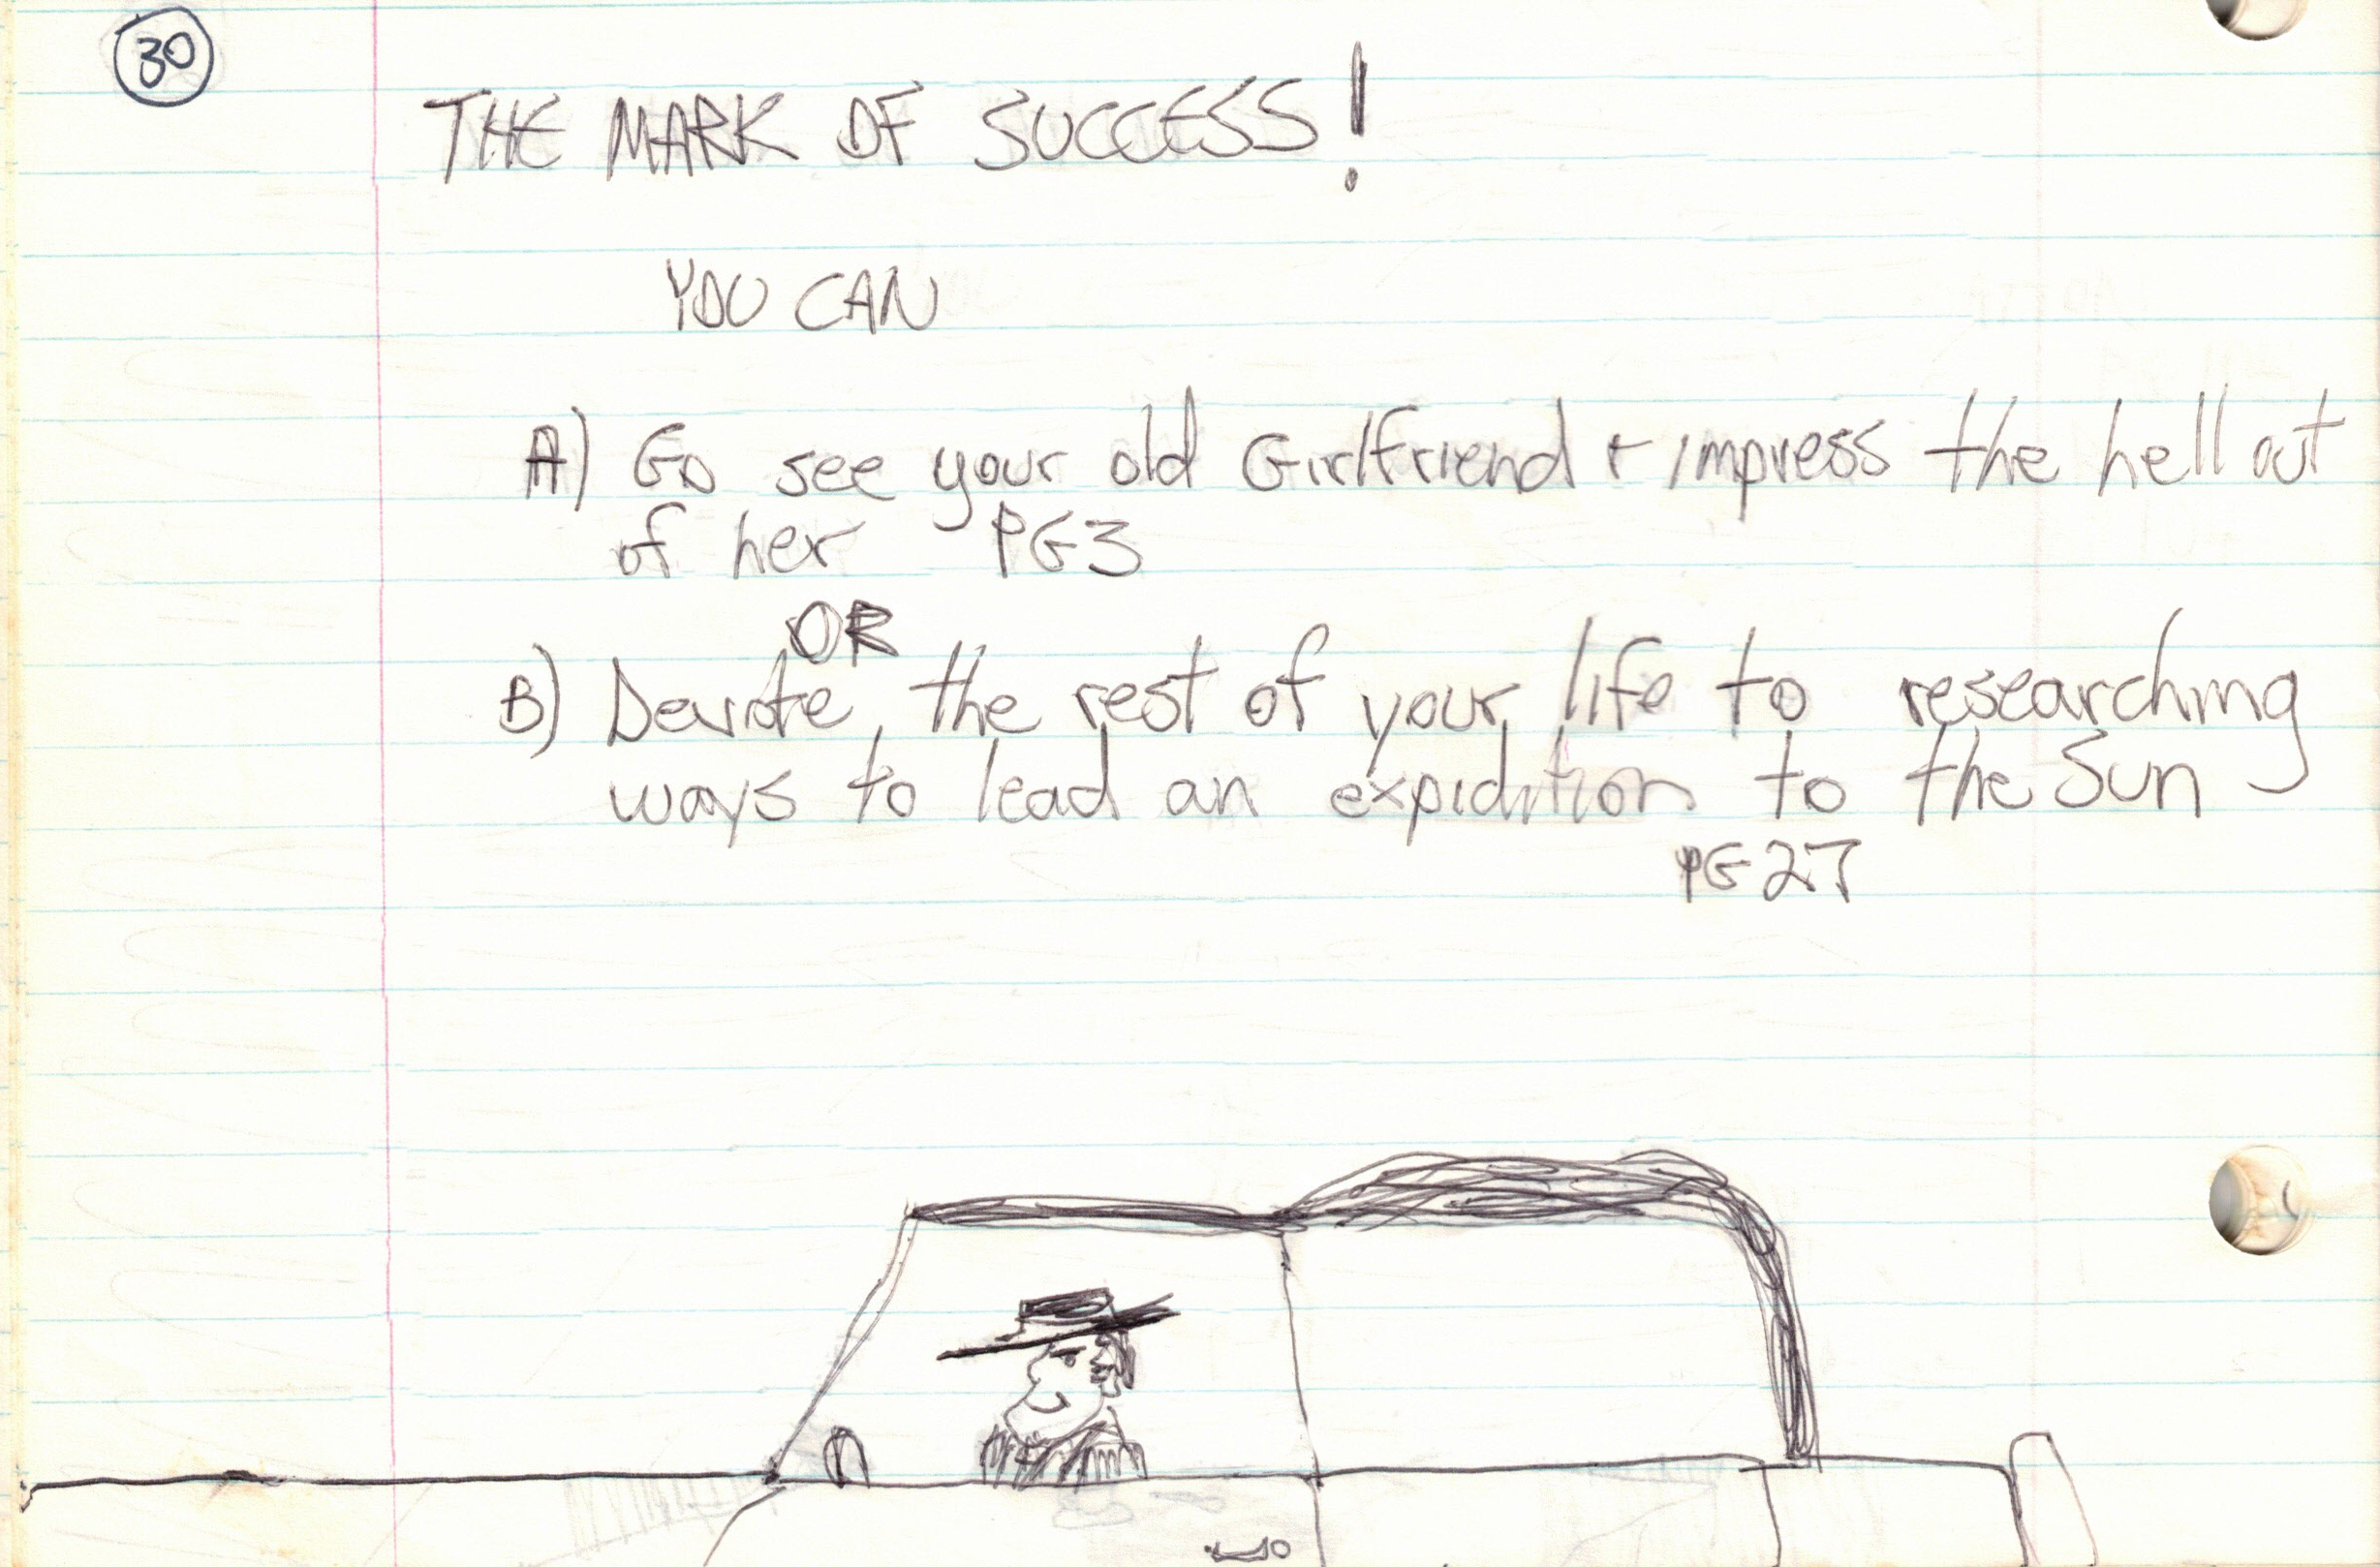 30
THE MARK OF SUCCESS!
YOU CAN
A) Go see your old Girlfriend + impress the hell out
of her PG3
OR
B) Devote the rest of your life to researching
ways to lead an expidition to the Sun
PG 27